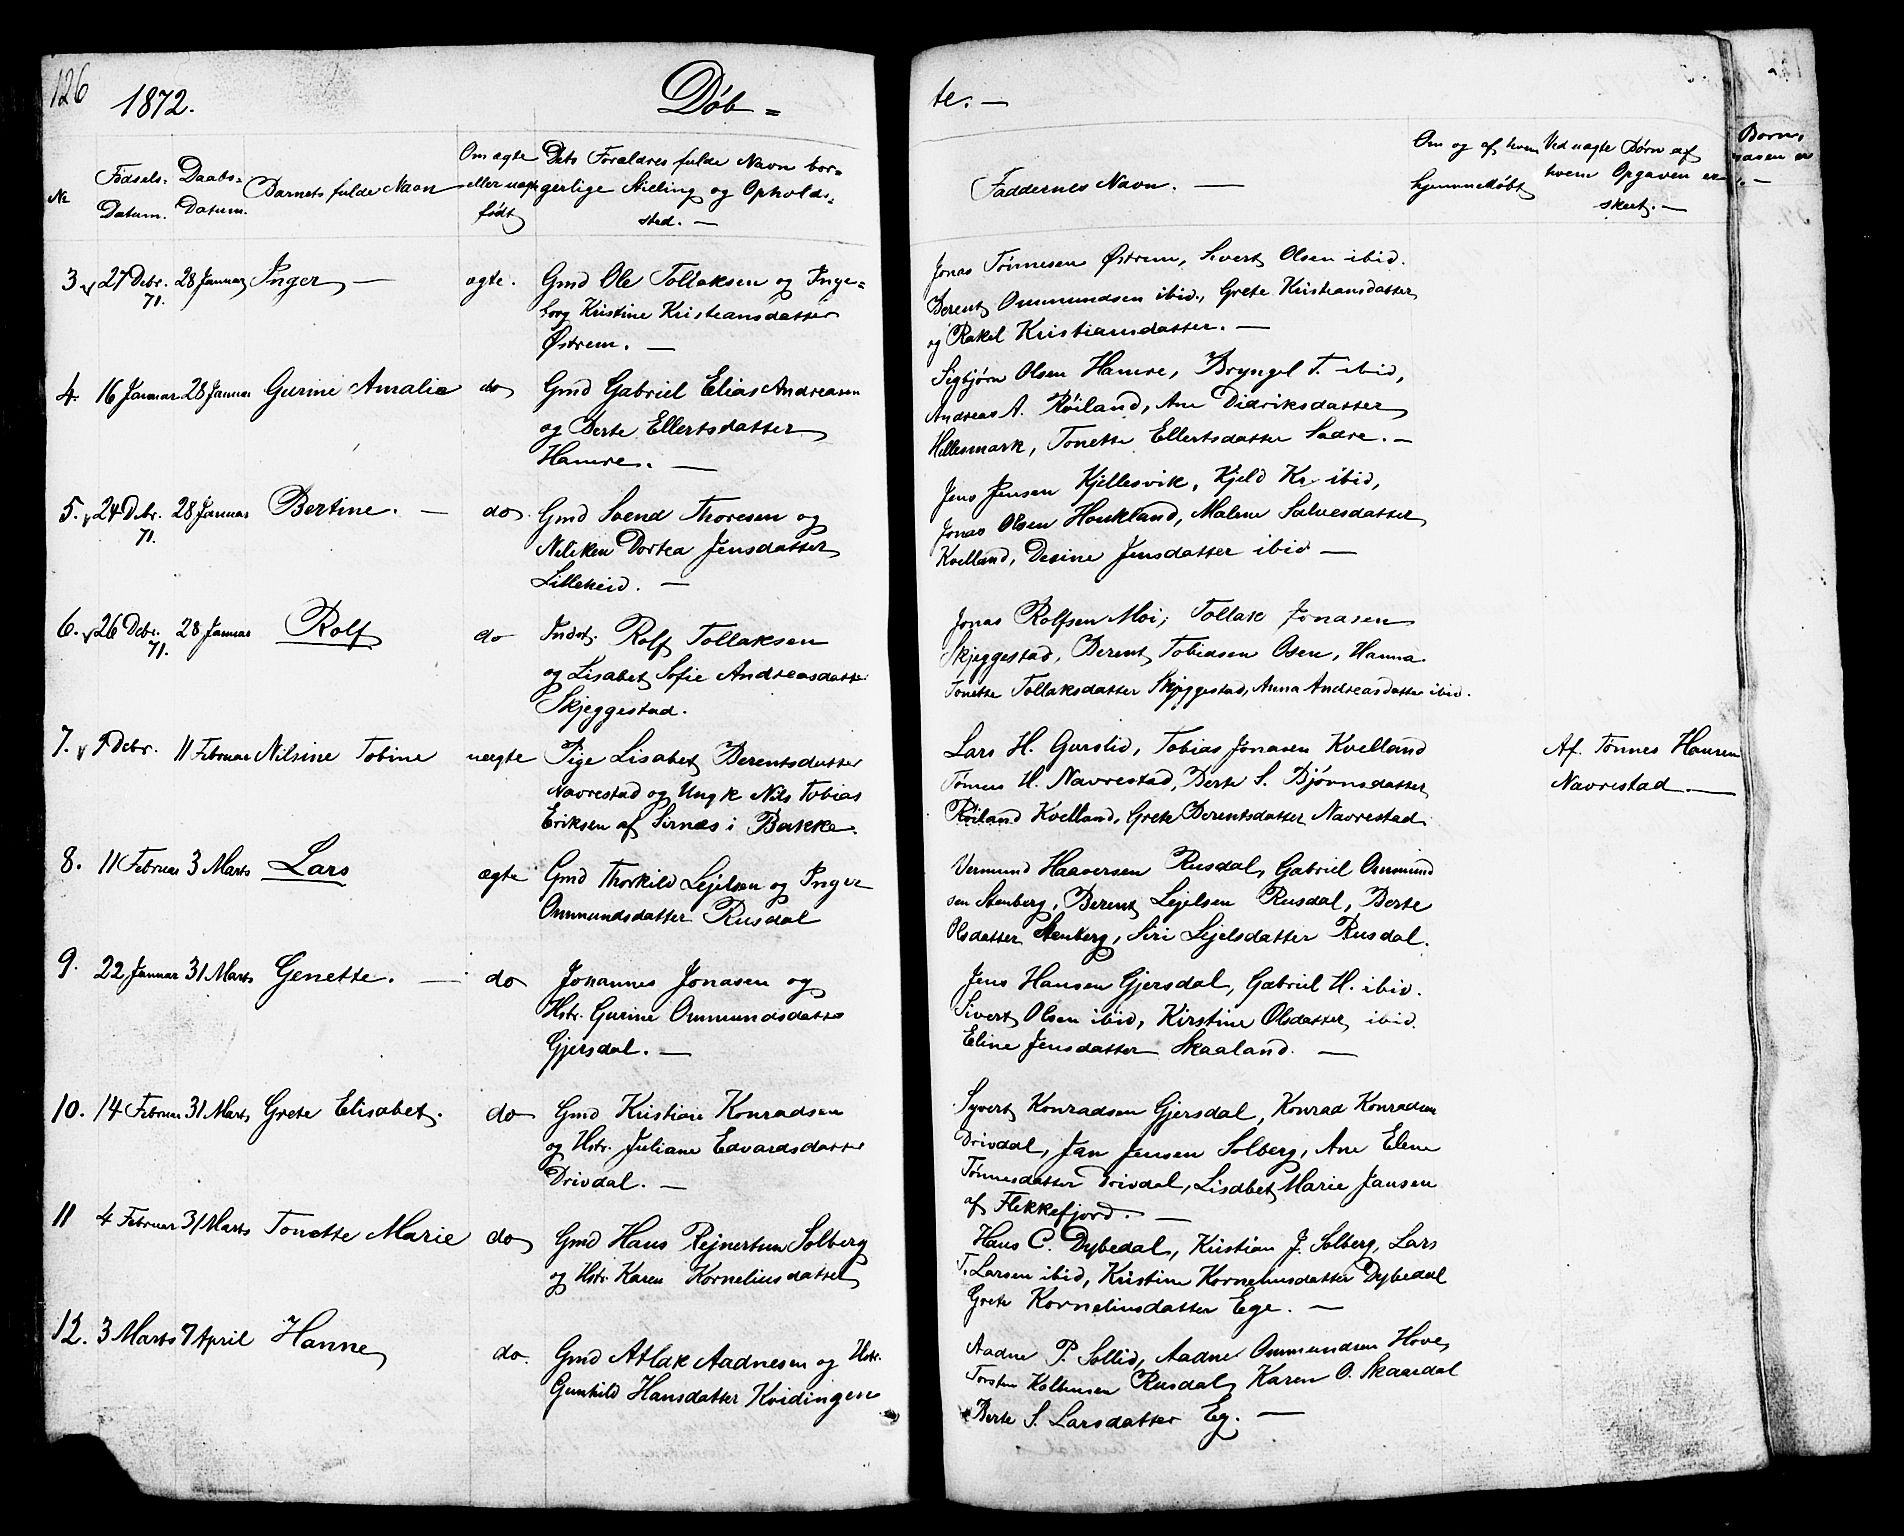 126
1872.
Døb =
te. —
No
Fødsels-
Datum.
Daabs-
Datum.
Barnets fulde Navn
Om ægte
eller uægte
født
Dets Forældres fulde Navn bor-
gerlige Stilling og Opholds-
sted. —
Faddernes Navn. —
Om og af hvem
hjemmedøbt
Ved uægte Børn af
hvem Opgaven er
skeet. —
3 27 Debr. 28 Januar Inger —
71.
ægte.
Gmd Ole Tollaksen og Inge-
borg Kristine Kristiansdatter
Østrem. —
Jonas Tønnesen Østrem, Sivert Olsen ibid.
Berent Ommundsen ibid., Grete Kristiansdatter
og Rakel Kristiansdatter. —
4. 16 Januar 28 Januar Gurine Amalie
do
Gmd Gabriel Elias Andreasen
og Berte Ellertsdatter
Hamre. —
Sigbjørn Olsen Hamre, Bryngel T. ibid,
Andreas A. Røiland, Ane Didriksdatter
Hellesmark, Tonette Ellertsdatter Sadre. —
5. 24 Debr. 28 Januar Bertine. —
71.
do.
Gmd Svend Thoresen og
Neliken Dortea Jensdatter
Lilleheid. —
Jens Jensen Kjellesvik, Kjeld Kr. ibid,
Jonas Olsen Haukland, Malene Salvesdatter
Kvelland, Desine Jensdatter ibid —
6. 26 Debr. 28 Januar Rolf
71.
do
Inderst. Rolf Tollaksen
og Lisabet Sofie Andreasdatter
Skjeggestad.
Jonas Rolfsen Moi, Tollak Jonasen
Skjeggestad, Berent Tobiasen Osen, Hanna
Tonette Tollaksdatter Skjeggestad, Anna Andreasdatter ibid.
7. 9 Debr. 11 Februar Nilsine Tobine
uægte
Pige Lisabet Berentsdatter
Navrestad og Ungk Nils Tobias
Eriksen af Sirnæs i Bakke.
Lars H. Gurslid, Tobias Jonasen Kvelland
Tønnes H. Navrestad, Berte S. Bjørnsdatter
Røiland Kvelland, Grete Berentsdatter Navrestad
Af. Tønnes Hansen
Navrestad —
8. 11 Februar 3 Marts Lars
ægte
Gmd Thorkild Lejelsen og Inger
Ommundsdatter Rusdal
Vermund Haaversen Rusdal, Gabriel Ommund
sen Stenberg, Berent Lejelsen Rusdal, Berte
Olsdatter Stenberg, Siri Lejelsdatter Rusdal.
9. 22 Januar 31 Marts Genette. —
do
Johannes Jonasen og
Hstr. Gurine Ommundsdatter
Gjersdal. —
Jens Hansen Gjersdal, Gabriel H. ibid.
Sivert Olsen ibid, Kirstine Olsdatter ibid.
Eline Jensdatter Skaaland. —
10. 14 Februar 31 Marts Grete Elisabet.
do
Gmd Kristian Konradsen
og Hstr. Juliane Edvardsdatter
Drivdal. —
Syvert Konradsen Gjersdal, Konrad Konradsen
Drivdal, Jan Jensen Solberg, Ane Elene
Tønnesdatter Drivdal, Lisabet Marie Jansen
af Flekkefjord. —
11 4 Februar 31 Marts Tonette Marie
do
Gmd Hans Rejnertsen Solberg
og Hstr. Karen Korneliusdatter
Hans C. Dybedal, Kristian J. Solberg, Lars
T. Larsen ibid, Kristine Korneliusdatter Dybedal
Grete Korneliusdatter Ege. —
12. 3 Marts 7 April Hanne
do.
Gmd Atlak Aadnesen og Hstr.
Gunhild Hansdatter Kvidingen
Aadne P. Sollid, Aadne Ommundsen Hove,
Torsten Kolbensen Rusdal, Karen O. Skaardal
Berte S. Larsdatter Eg. —